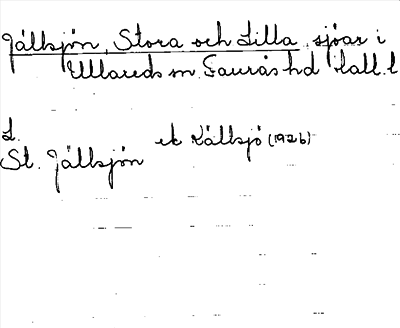 Jällsjön, Stora och Lilla, sjöar i
Ullareds sn Faurås hd Hall. l
L.
St. Jällsjön ek Källsjö (1926)